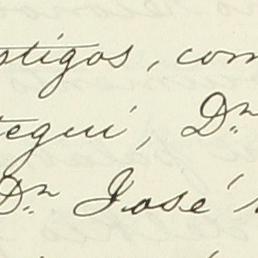 stigos, com
tegui, Dn.
Dn. José